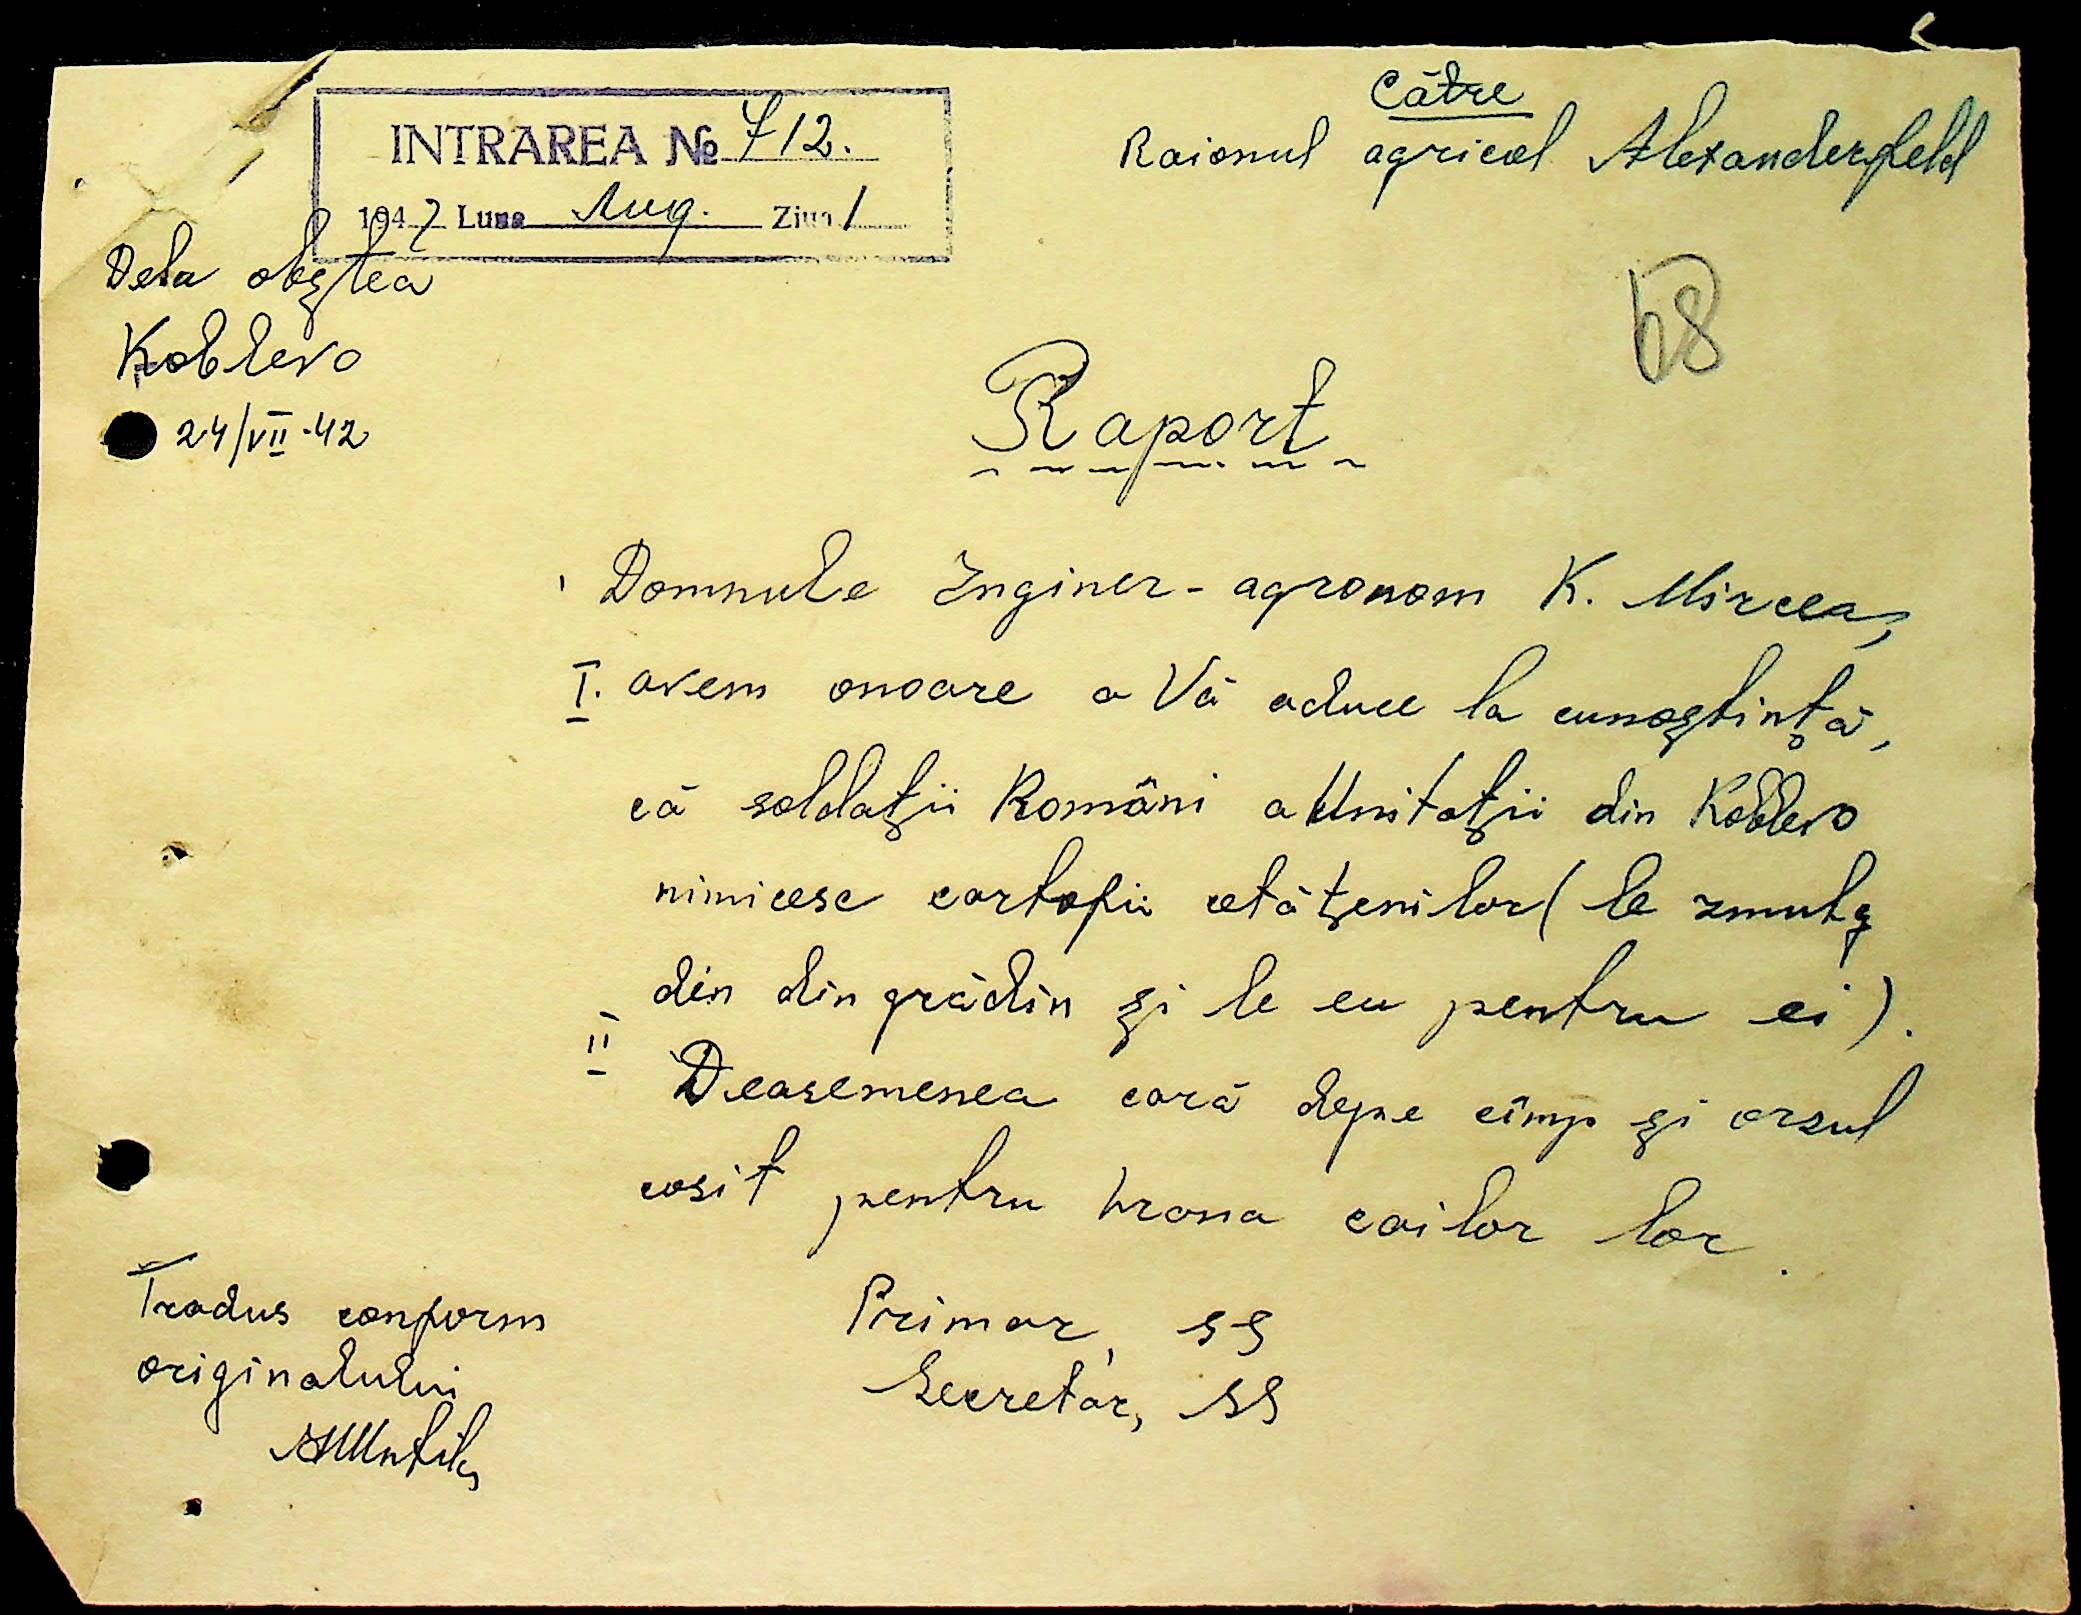 INTRAREA № 712.
1942 Luna Aug. Ziua 1
Către
Raionul agricol Alexanderfeld
Dela obștea
Koblevo
24/VII-42
68
Raport
Domnule Inginer-agronom K. Mircea,
I. avem onoare a Vă aduce la cunoștință,
că soldații Români a Unitații din Koblevo
nimicesc cartofii cetățenilor (le zmulg
din din grădin și le eu pentru ei).
II Deasemenea cară depe cîmp și orzul
cosit pentru hrana cailor lor.
Primar, ss
Secretar, ss
Tradus conform
originalului